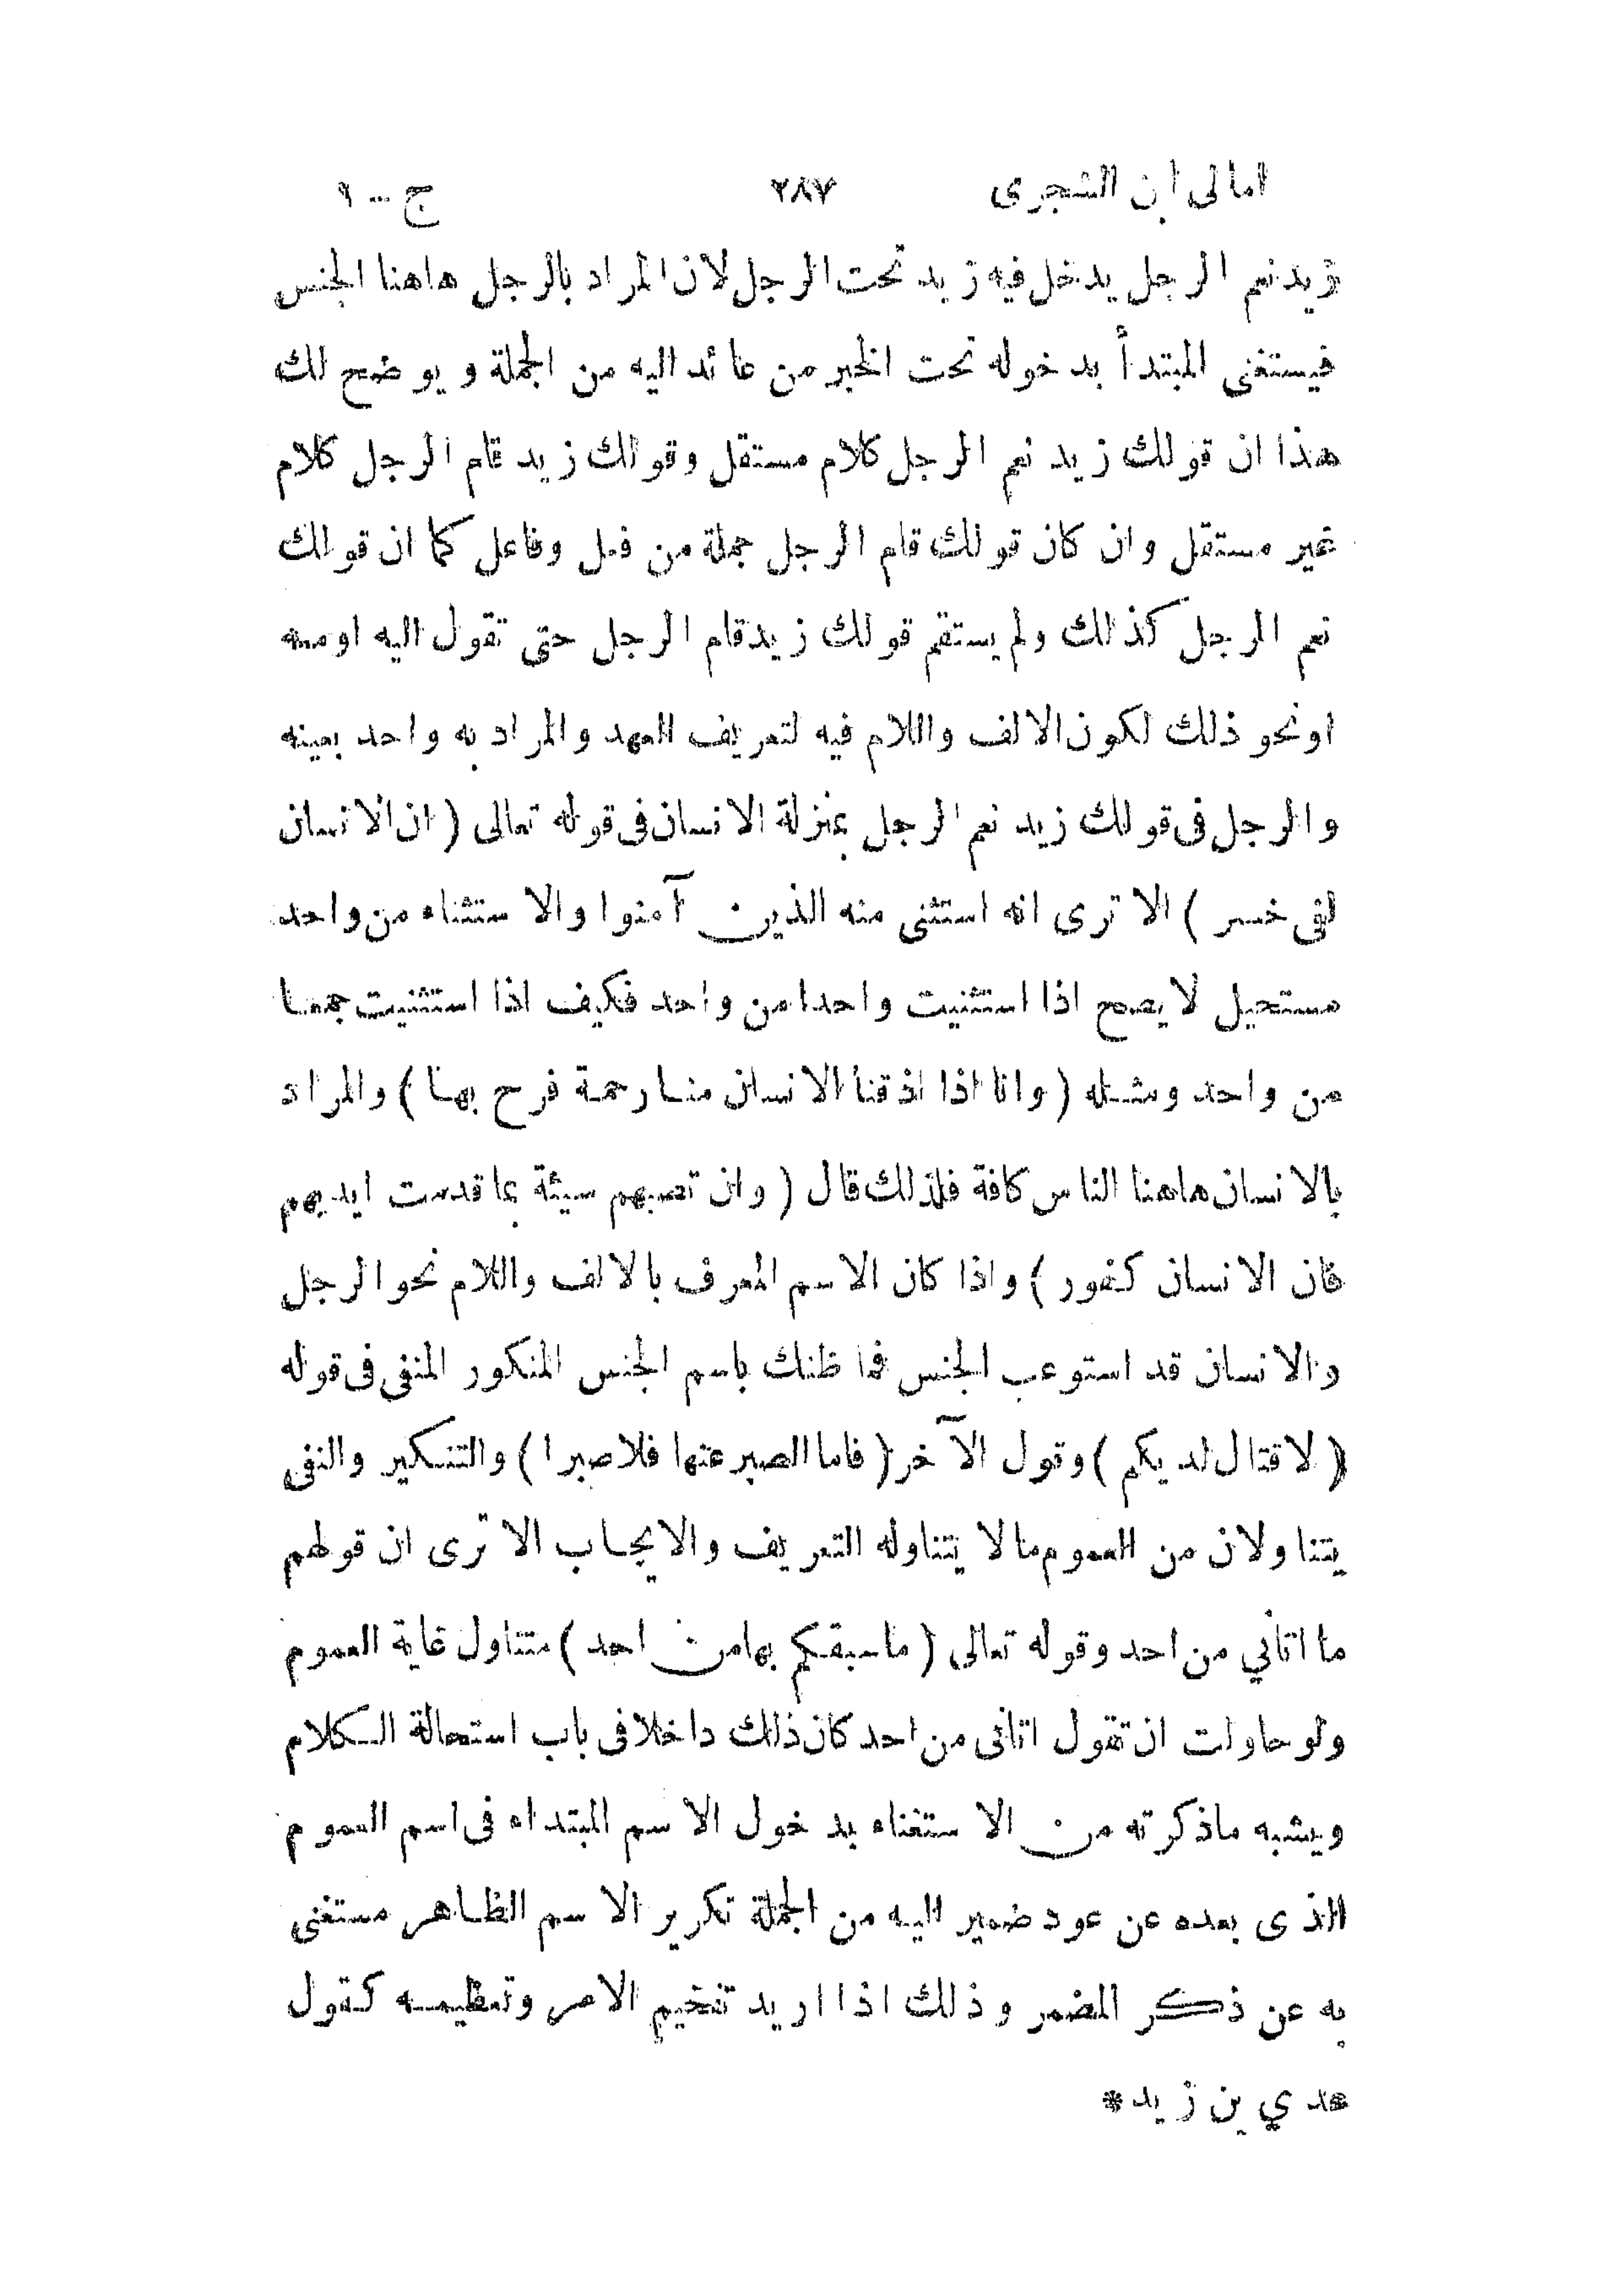 امالى ابن الشجرى ٢٨٧ ج - ١
زيد نعم الرجل يدخل فيه زيد تحت الرجل لان المراد بالرجل هاهنا الجنس
فيستغنى المبتدأ بدخوله تحت الخبر من عائد اليه من الجملة ويوضح لك
هذا ان قولك زيد نعم الرجل كلام مستقل وقولك زيد قام الرجل كلام
غير مستقل وان كان قولك قام الرجل جملة من فعل وفاعل كما ان قولك
نعم الرجل كذلك ولم يستقم قولك زيد قام الرجل حتى تقول اليه او معه
او نحو ذلك لكون الالف واللام فيه لتعريف العهد والمراد به واحد بعينه
والرجل فى قولك زيد نعم الرجل بمنزلة الانسان فى قوله تعالى ( ان الانسان
لفى خسر ) الا ترى انه استثنى منه الذين آمنوا والاستثناء من واحد
مستحيل لا يصح اذا استثنيت واحدا من واحد فكيف اذا استثنيت جمعا
من واحد ومثله ( وانا اذا اذقنا الانسان منا رحمة فرح بها ) والمراد
بالانسان هاهنا الناس كافة فلذلك قال ( وان تصبهم سيئة بما قدمت ايديهم
فان الانسان كفور ) واذا كان الاسم المعرف بالالف واللام نحو الرجل
والانسان قد استوعب الجنس فما ظنك باسم الجنس المنكور المنفى فى قوله
( لا قتال لديكم ) وقول الآخر ( فاما الصبر عنها فلا صبرا ) والتنكير والنفى
يتناولان من العموم مالا يتناوله التعريف والايجاب الا ترى ان قولهم
ما اتاني من احد وقوله تعالى ( ما سبقكم بها من احد ) متناول غاية العموم
ولو حاولت ان تقول اتانى من احد كان ذلك داخلا فى باب استحالة الكلام
ويشبه ماذكرته من الاستغناء بدخول الاسم المبتداء فى اسم العموم
الذى بعده عن عود ضمير اليه من الجملة تكرير الاسم الظاهر مستغنى
به عن ذكر المضمر وذلك اذا اريد تفخيم الامر وتعظيمه كقول
عدي بن زيد*